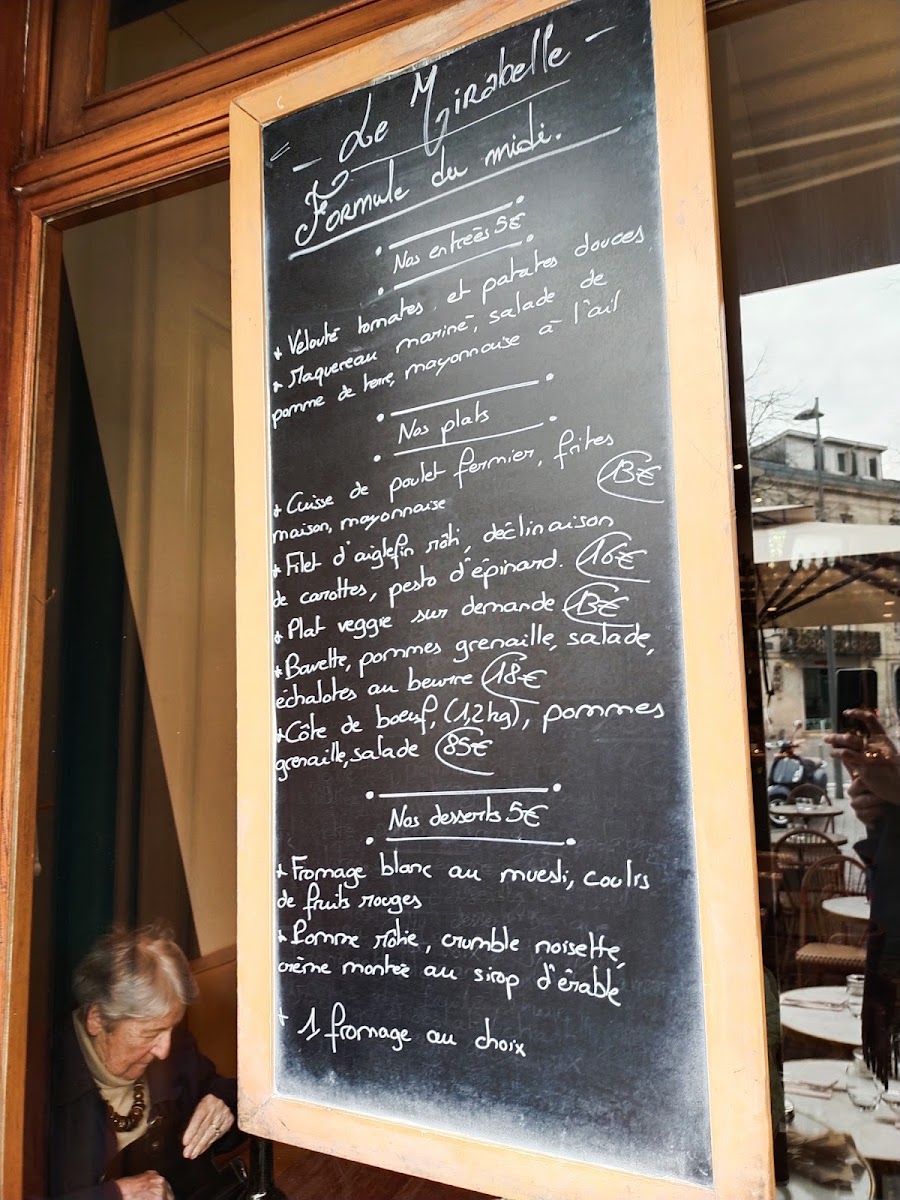 - Le Mirabelle -
Formule du midi.
Nos entrées 5€
* Velouté tomates et patates douces
* Maquereau mariné, salade de
pomme de terre, mayonnaise à l'ail
Nos plats
* Cuisse de poulet fermier, frites
maison, mayonnaise 13€
* Filet d'aiglefin rôti, déclinaison
de carottes, pesto d'épinard. 16€
* Plat veggie sur demande 13€
* Bavette, pommes grenaille, salade,
échalotes au beurre 18€
* Côte de boeuf, (1,2kg), pommes
grenaille, salade 85€
Nos desserts 5€
* Fromage blanc au muesli, coulis
de fruits rouges
* Pomme rôtie, crumble noisette,
crème montée au sirop d'érable
* 1 fromage au choix